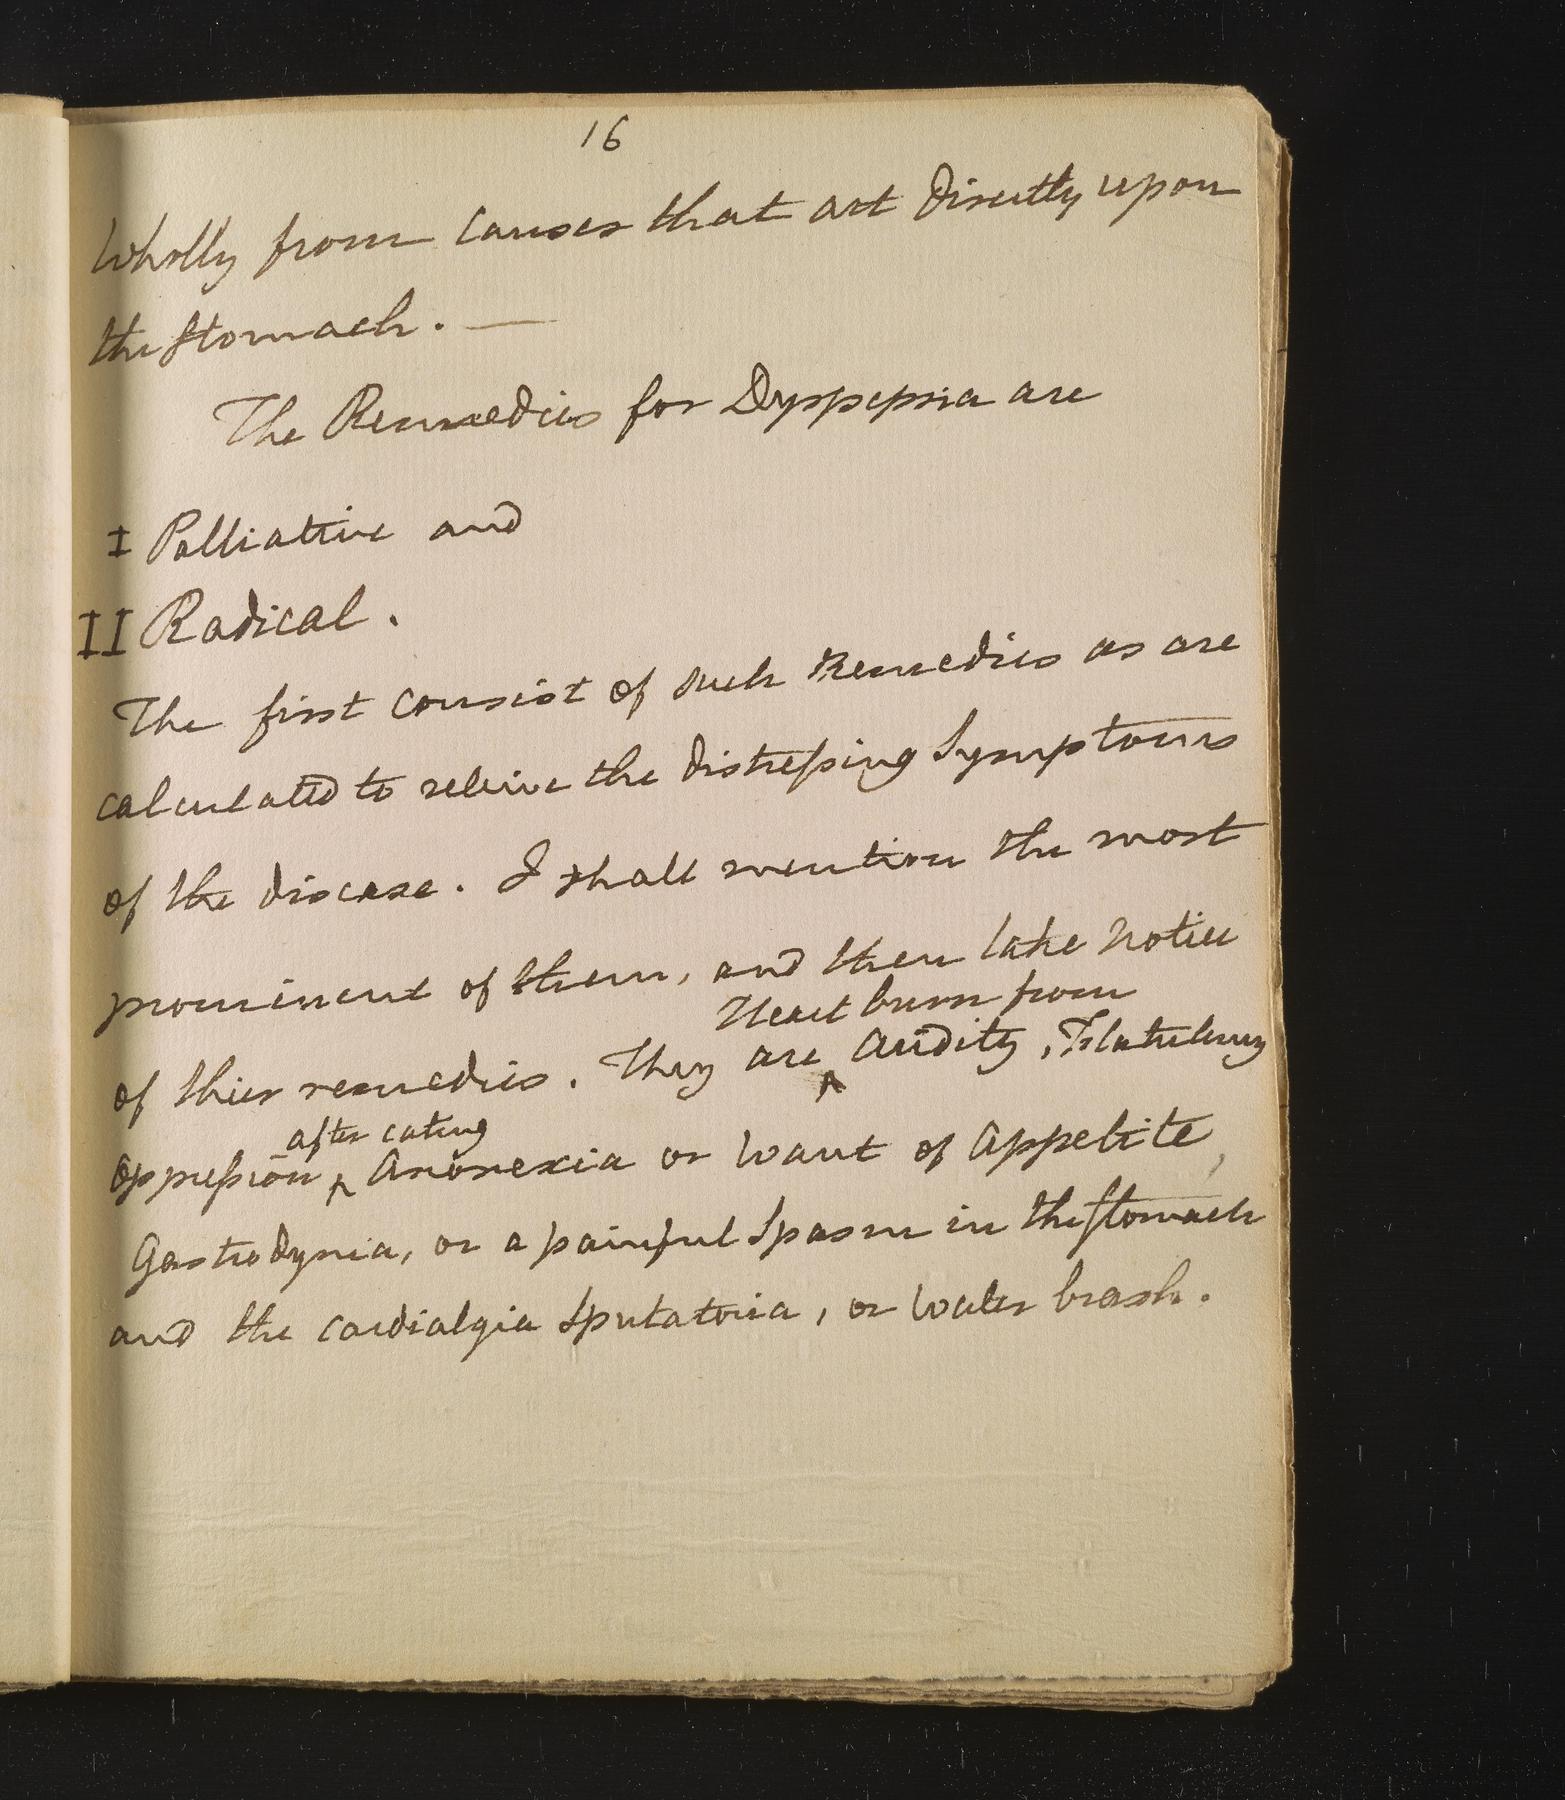 16
Wholly from causes that act directly upon
the stomach. —
The Remedies for Dyspepsia are
I Palliative and
II Radical.
The first consist of such Remedies as are
calculated to releive the distressing Symptoms
of the disease. I shall mention the most
prominent of them, and then take notice
Heart burn from
of thier remedies. They are ^ acidity, Flatulency
after eating
Oppression ^ Anorexia or want of appetite,
Gastrodynia, or a painful Spasm in the stomach
and the cardialgia Sputatoria, or water brash.